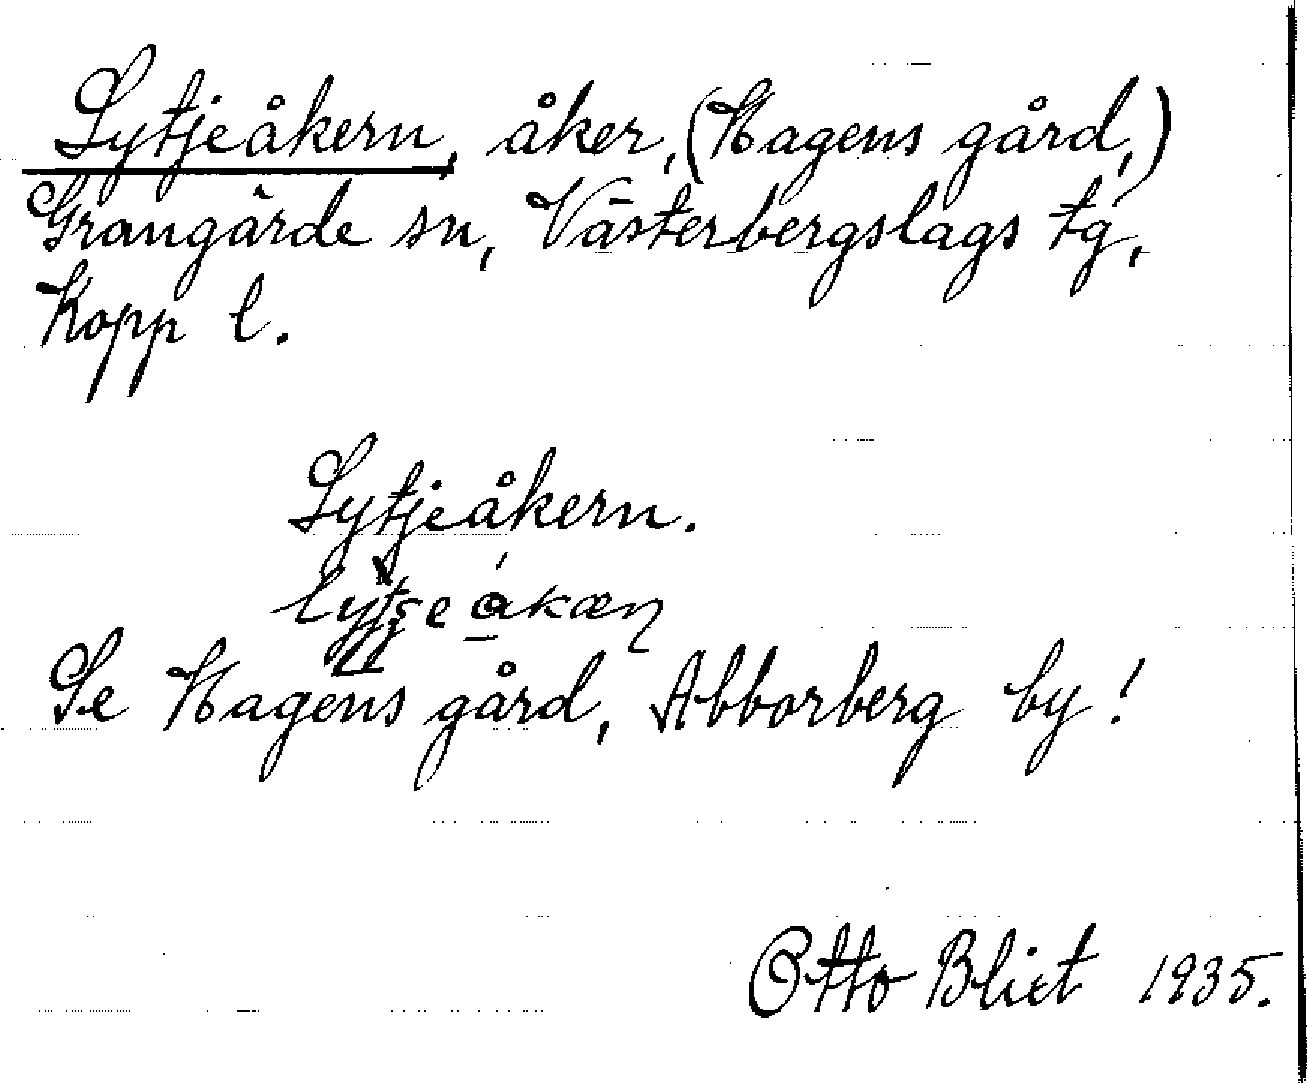 Lytjeåkern, åker, (Hagens gård,)
Grangärde sn, Västerbergslags tg,
Kopp l.
Lytjeåkern.
Se Hagens gård, Abborberg by!
Otto Blixt 1935.